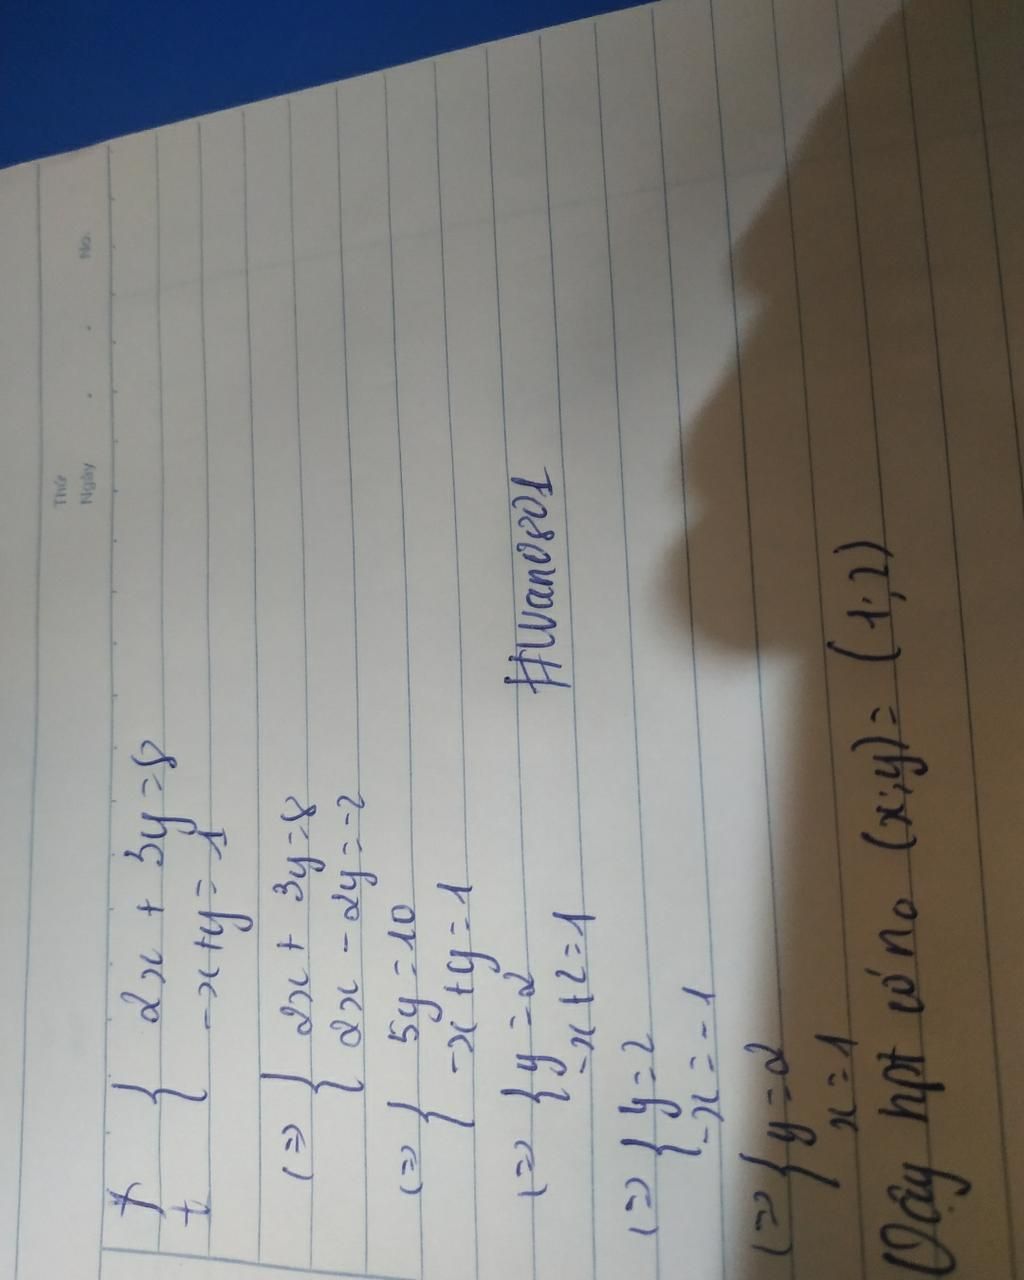 Thứ
Ngày . . No.
{ 2x + 3y = 8
-x + y = 1
(=) { 2x + 3y = 8
2x - 2y = -2
(=) { 5y = 10
-x + y = 1
(=) { y = 2
-x + 2 = 1
#Wan0801
(=) { y = 2
-x = -1
(=) { y = 2
x = 1
Vậy hpt có no (x;y) = (1;2)